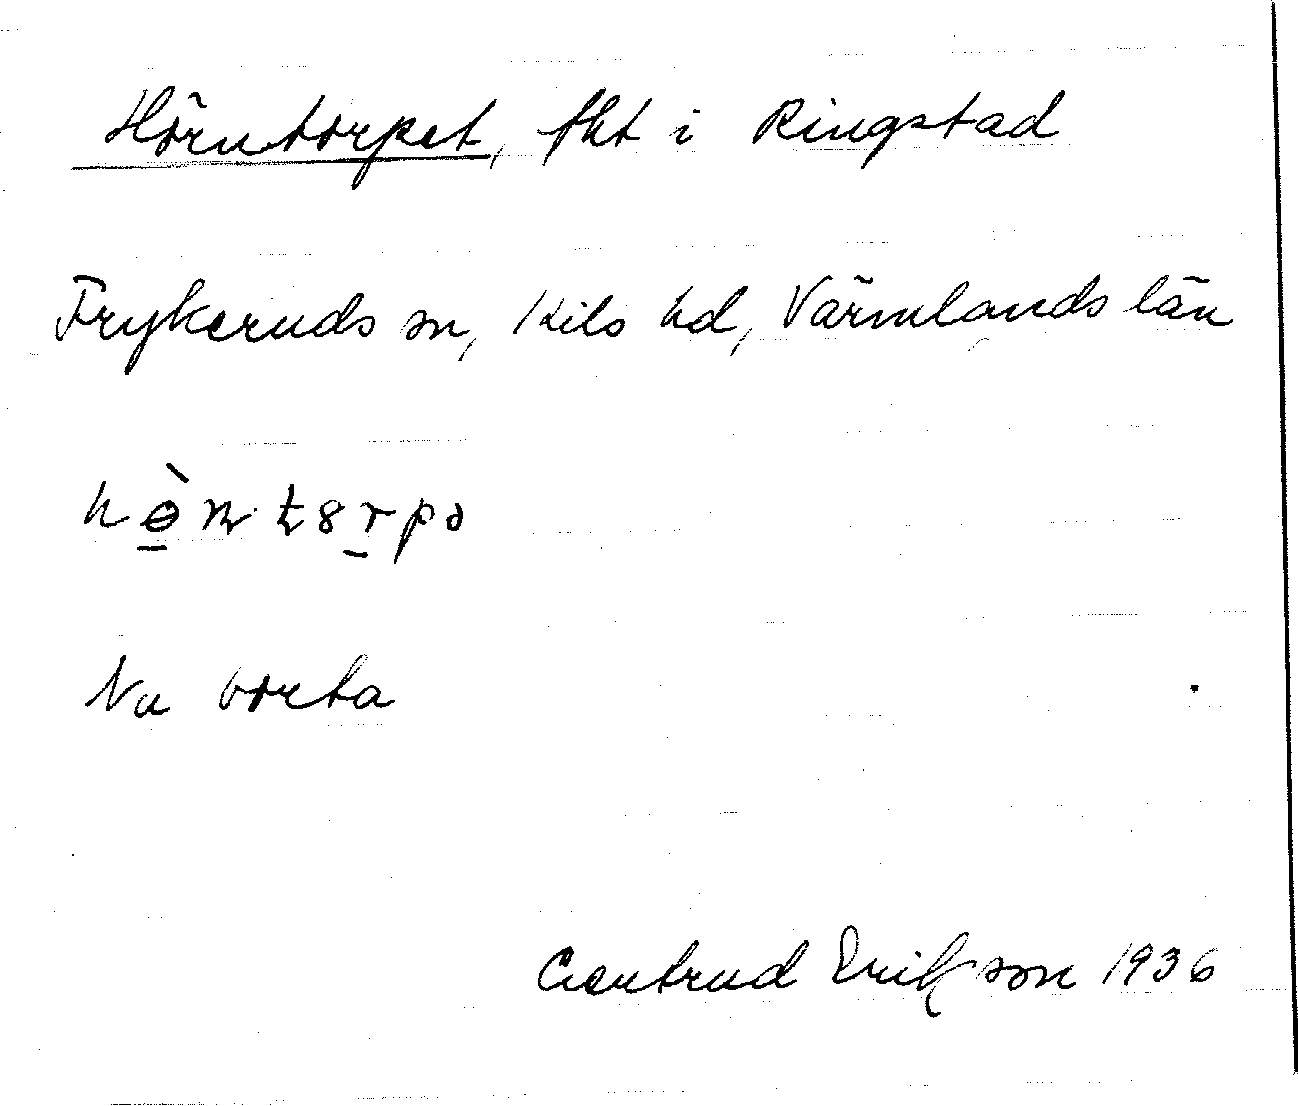 Hörntorpet, fht i Ringstad
Frykeruds sn, Kils hd, Värmlands län
Nu borta
Gertrud Erikson 1936